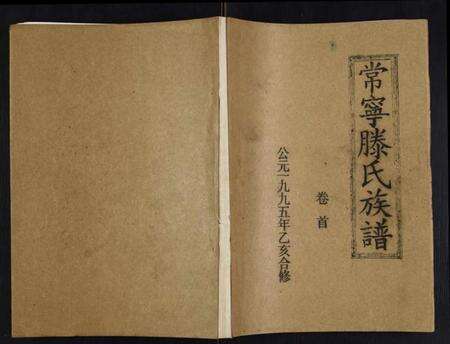 常寧滕氏族譜
卷首
公元一九九五年乙亥合修